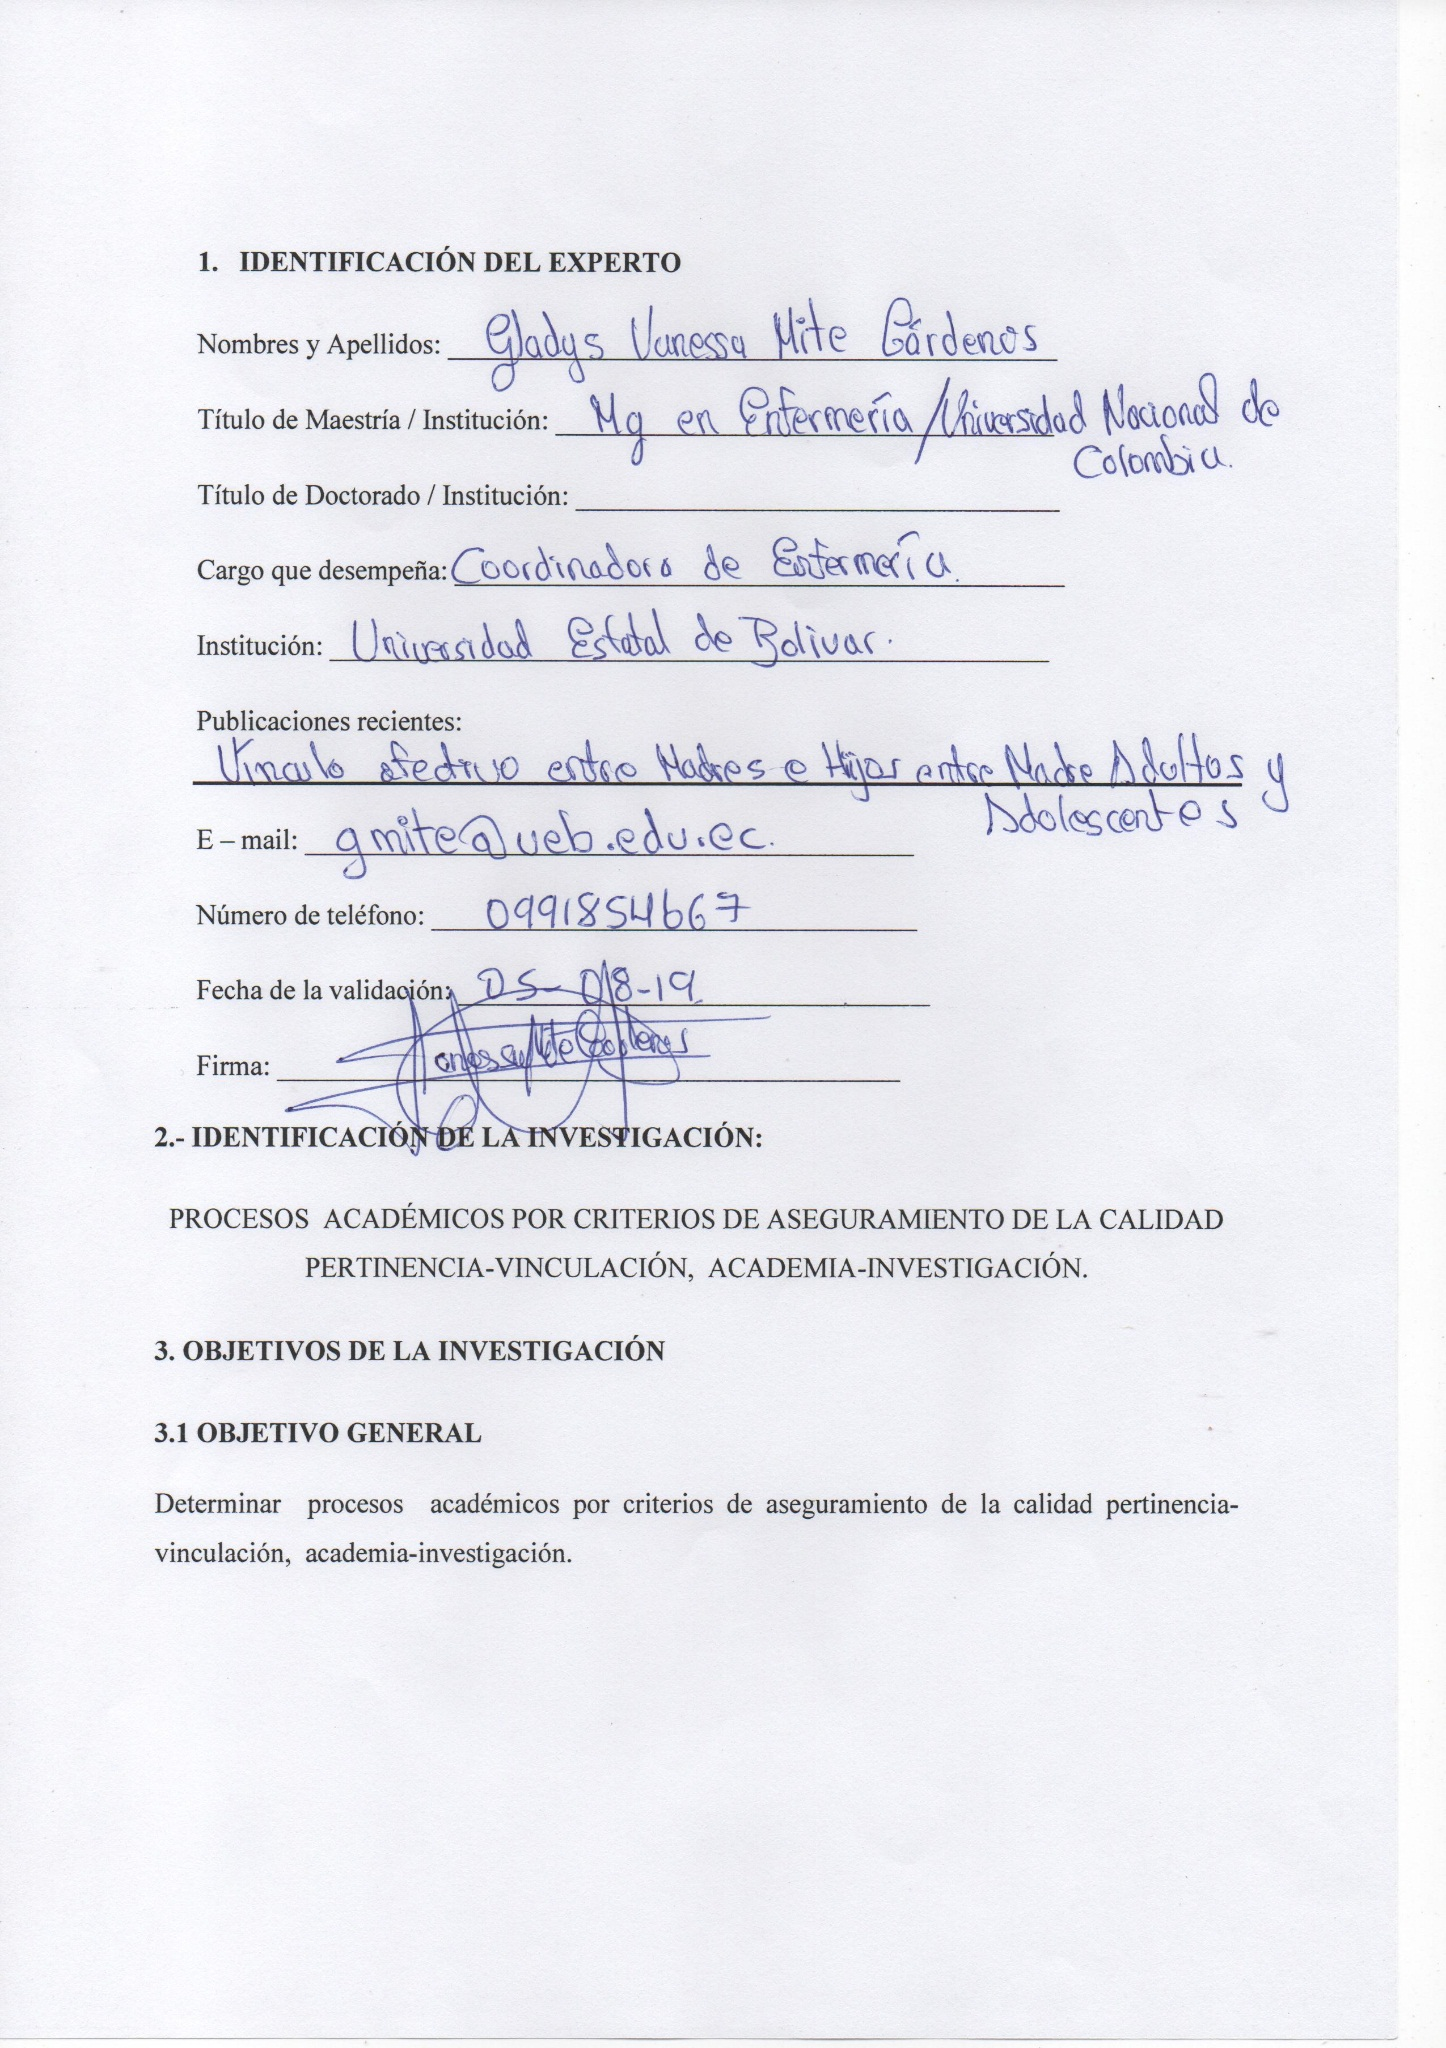 1. IDENTIFICACIÓN DEL EXPERTO
Nombres y Apellidos: Gladys Vanessa Mite Cárdenas
Título de Maestría / Institución: Mg en Enfermería / Universidad Nacional de
Colombia.
Título de Doctorado / Institución:
Cargo que desempeña: Coordinadora de Enfermería.
Institución: Universidad Estatal de Bolivar.
Publicaciones recientes:
Vínculo afectivo entre Madres e Hijos entre Madre Adultas y
Adolescentes
E – mail: gmite@ueb.edu.ec.
Número de teléfono: 0991854667
Fecha de la validación: 05-08-19
Firma: Vanessa Mite Cárdenas
2.- IDENTIFICACIÓN DE LA INVESTIGACIÓN:
PROCESOS ACADÉMICOS POR CRITERIOS DE ASEGURAMIENTO DE LA CALIDAD
PERTINENCIA-VINCULACIÓN, ACADEMIA-INVESTIGACIÓN.
3. OBJETIVOS DE LA INVESTIGACIÓN
3.1 OBJETIVO GENERAL
Determinar procesos académicos por criterios de aseguramiento de la calidad pertinencia-
vinculación, academia-investigación.